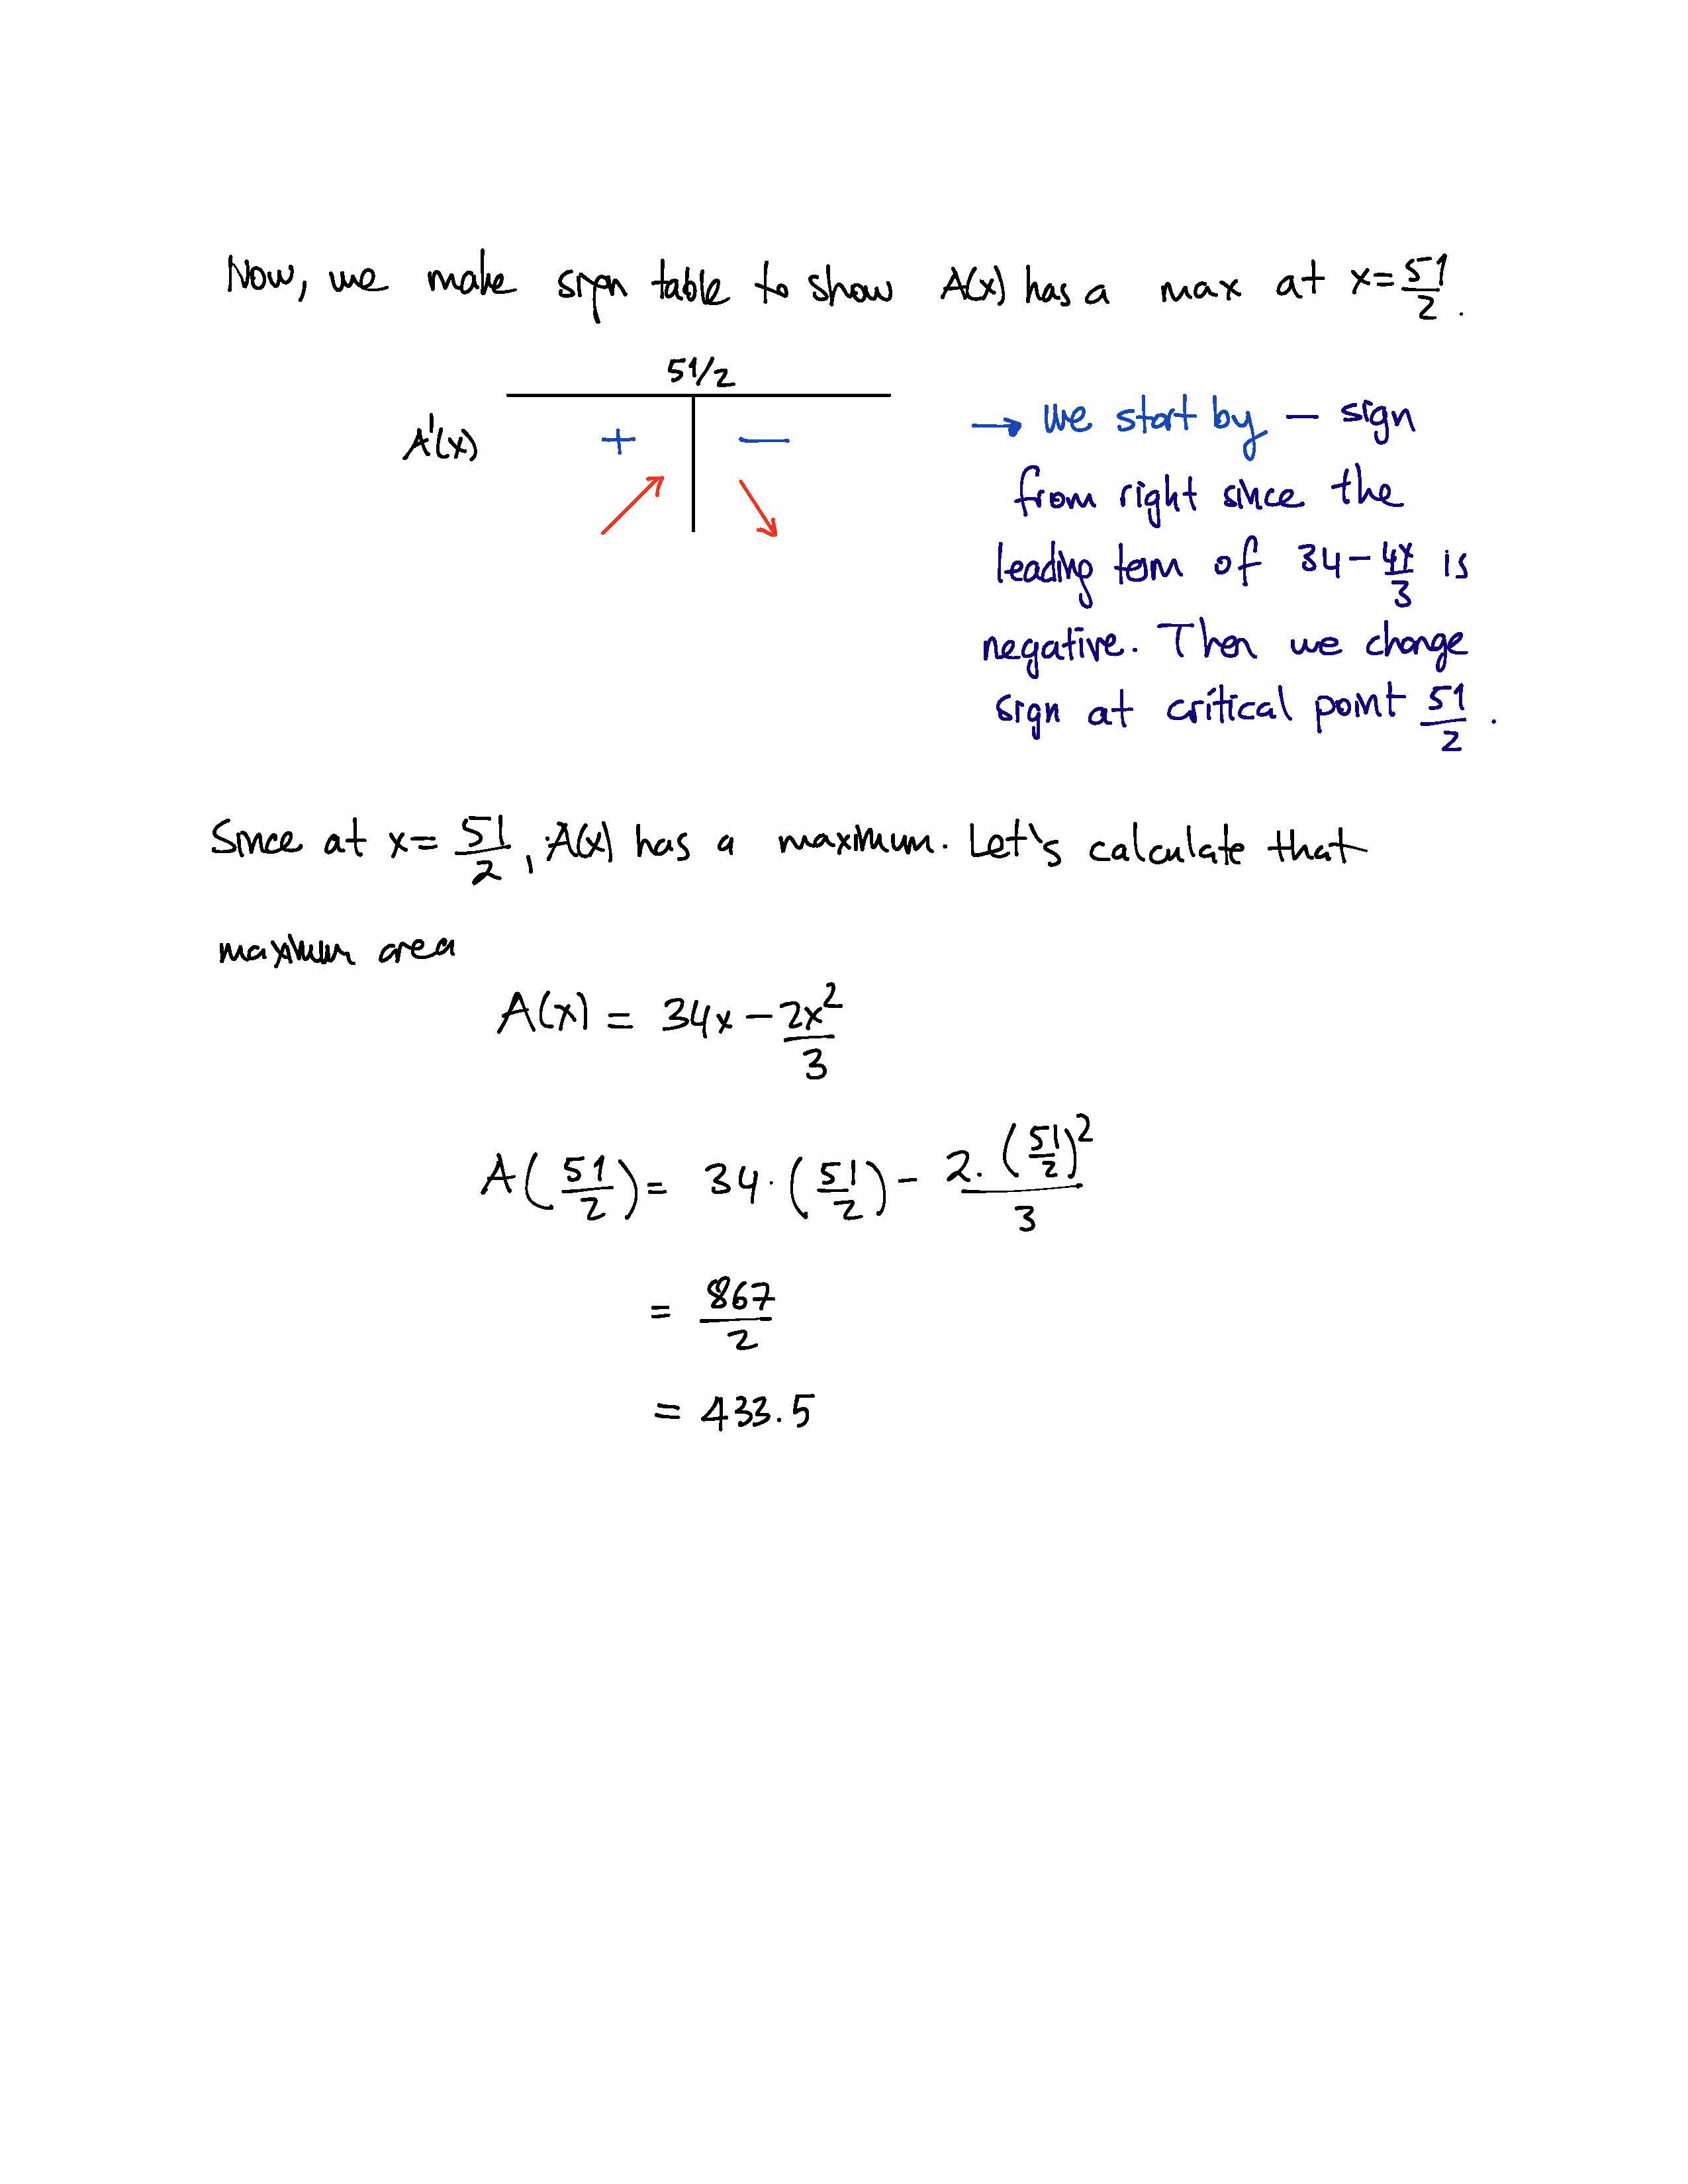 Now, we make sign table to show A(x) has a max at x=51/2.
51/2
A'(x) + −
→ we start by − sign
from right since the
leading term of 34−4x/3 is
negative. Then we change
sign at critical point 51/2.
Since at x=51/2, A(x) has a maximum. Let's calculate that
maximum area
A(x) = 34x − 2x²/3
A(51/2) = 34·(51/2) − 2·(51/2)²/3
= 867/2
= 433.5